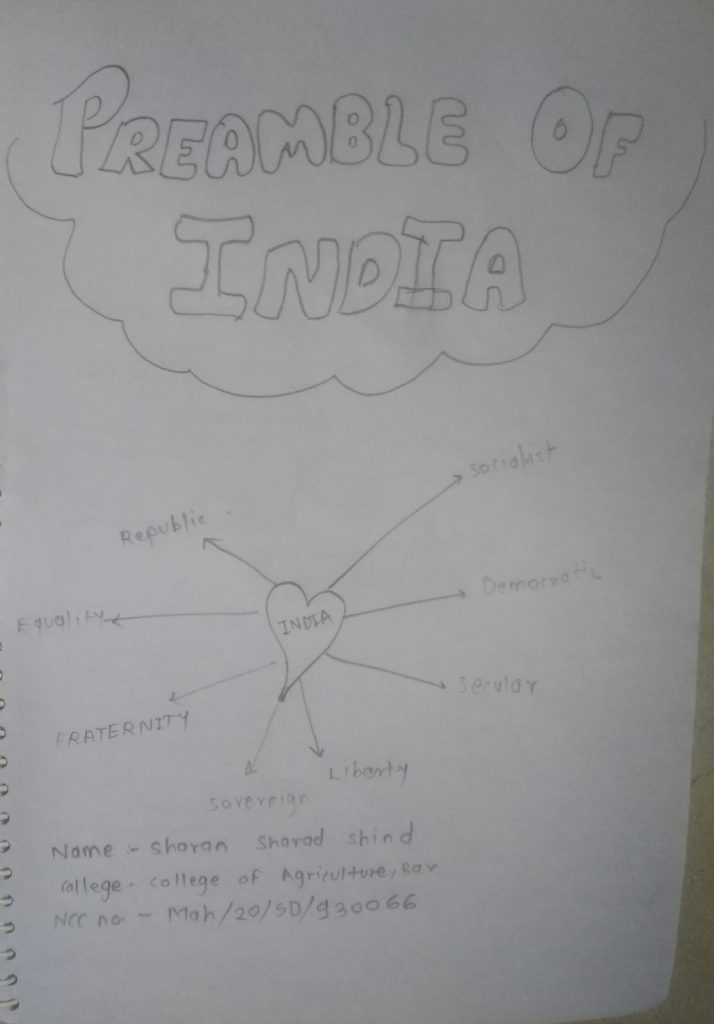 PREAMBLE OF
INDIA
socialist
Republic
Democratic
Equality
INDIA
secular
FRATERNITY
Liberty
sovereign
Name :- Sharan Sharad Shind
College - College of Agriculture, Bar
NCC no - Mah/20/SD/930066